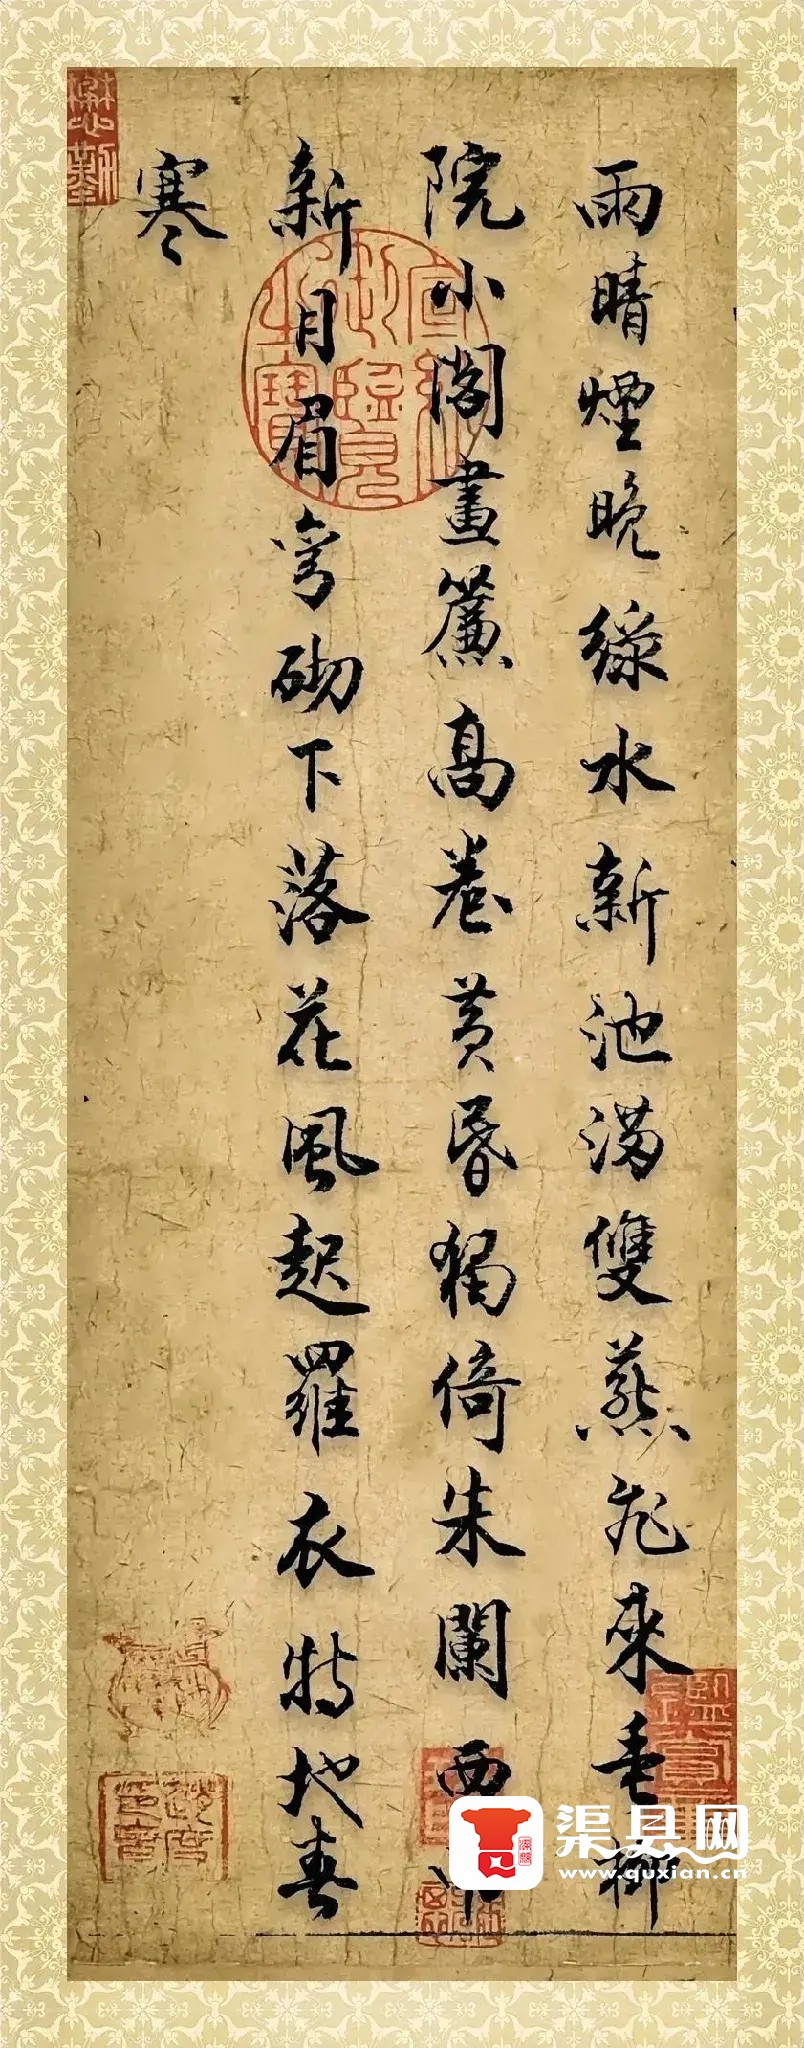 雨晴煙晚綠水新池滿雙燕飛來垂柳
院小閣畫簾高卷黃昏獨倚朱闌西
新月眉彎砌下落花風起羅衣特地春
寒
渠县网
www.quxian.cn